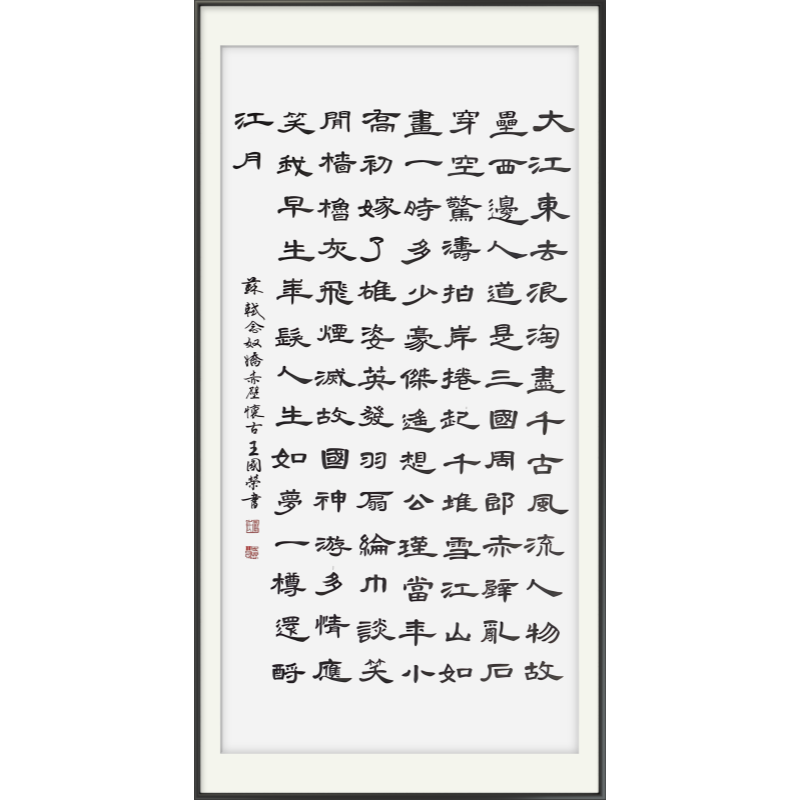 大江東去浪淘盡千古風流人物故
壘西邊人道是三國周郎赤壁亂石
穿空驚濤拍岸捲起千堆雪江山如
畫一時多少豪傑遙想公瑾當年小
喬初嫁了雄姿英發羽扇綸巾談笑
閒檣櫓灰飛煙滅故國神游多情應
笑我早生華髮人生如夢一樽還酹
江月
蘇軾念奴嬌赤壁懷古王國榮書